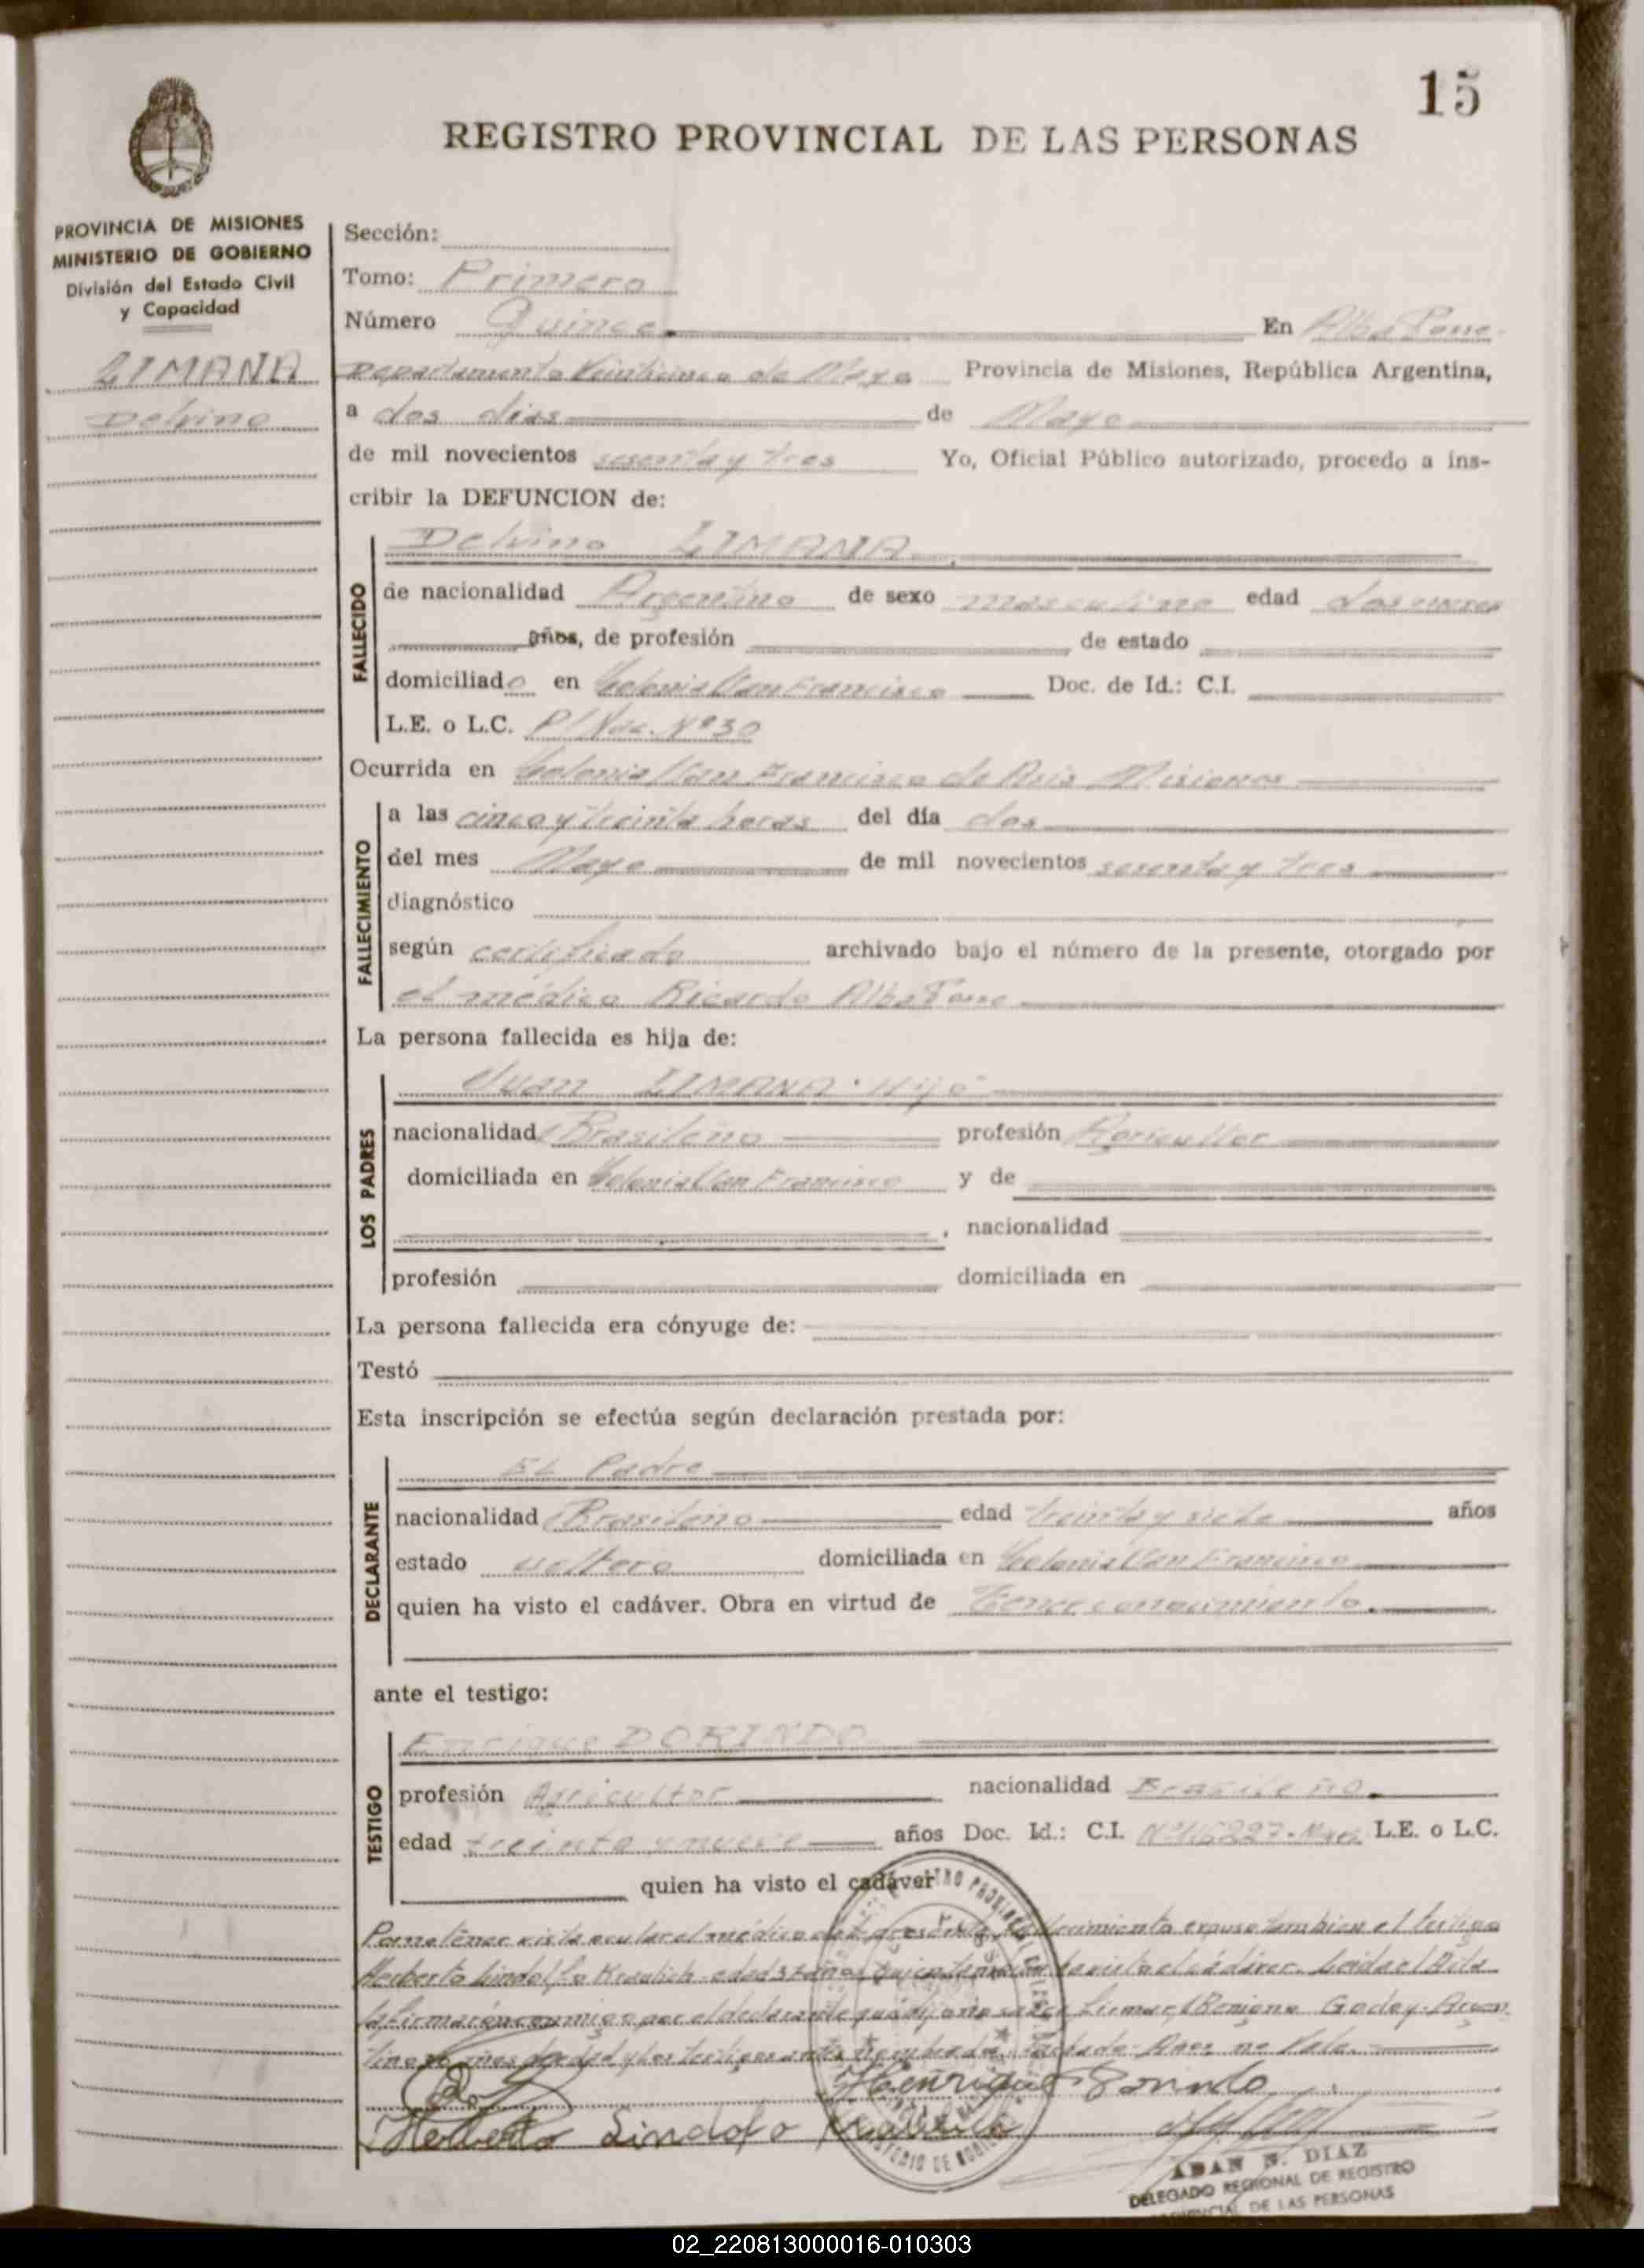 15
REGISTRO PROVINCIAL DE LAS PERSONAS
PROVINCIA DE MISIONES
MINISTERIO DE GOBIERNO
División del Estado Civil
y Capacidad
LIMANA
Delvino
Sección:
Tomo: Primero
Número Quince En Alba Posse
Departamento Veinticinco de Mayo Provincia de Misiones, República Argentina,
a dos dias de Mayo
de mil novecientos sesenta y tres Yo, Oficial Público autorizado, procedo a ins-
cribir la DEFUNCION de:
FALLECIDO
Delvino LIMANA
de nacionalidad Argentino de sexo masculino edad dos meses
años, de profesión de estado
domiciliado en Colonia San Francisco Doc. de Id.: C.I.
L.E. o L.C. P/ Nac. Nº 30
Ocurrida en Colonia San Francisco de Asis Misiones
FALLECIMIENTO
a las cinco y treinta horas del día dos
del mes Mayo de mil novecientos sesenta y tres
diagnóstico
según certificado archivado bajo el número de la presente, otorgado por
el médico Ricardo Alba Posse
La persona fallecida es hija de:
LOS PADRES
Juan LIMANA Hijo
nacionalidad Brasileño profesión Agricultor
domiciliada en Colonia San Francisco y de
, nacionalidad
profesión domiciliada en
La persona fallecida era cónyuge de:
Testó
Esta inscripción se efectúa según declaración prestada por:
DECLARANTE
El Padre
nacionalidad Brasileño edad treinta y siete años
estado soltero domiciliada en Colonia San Francisco
quien ha visto el cadáver. Obra en virtud de Tener conocimiento.
ante el testigo:
TESTIGO
Enrique DORINDO
profesión Agricultor nacionalidad Brasileño.
edad treinta y nueve años Doc. Id.: C.I. L.E. o L.C.
quien ha visto el cadáver
Para tener vista ocular el médico del presente fallecimiento expuso tambien el testigo
Herberto Lindolfo edad años quien tambien ha visto el cádaver. Leida el Acta
la firmarón conmigo por el declarante que dijo no saber firmar, Benigno Godoy. Argen
tino años de edad y los testigos antes nombrados. Testado: Años no Vale.
Henrique
Herberto Lindolfo
ADAN N. DIAZ
DELEGADO REGIONAL DE REGISTRO
PROVINCIAL DE LAS PERSONAS
02_220813000016-010303